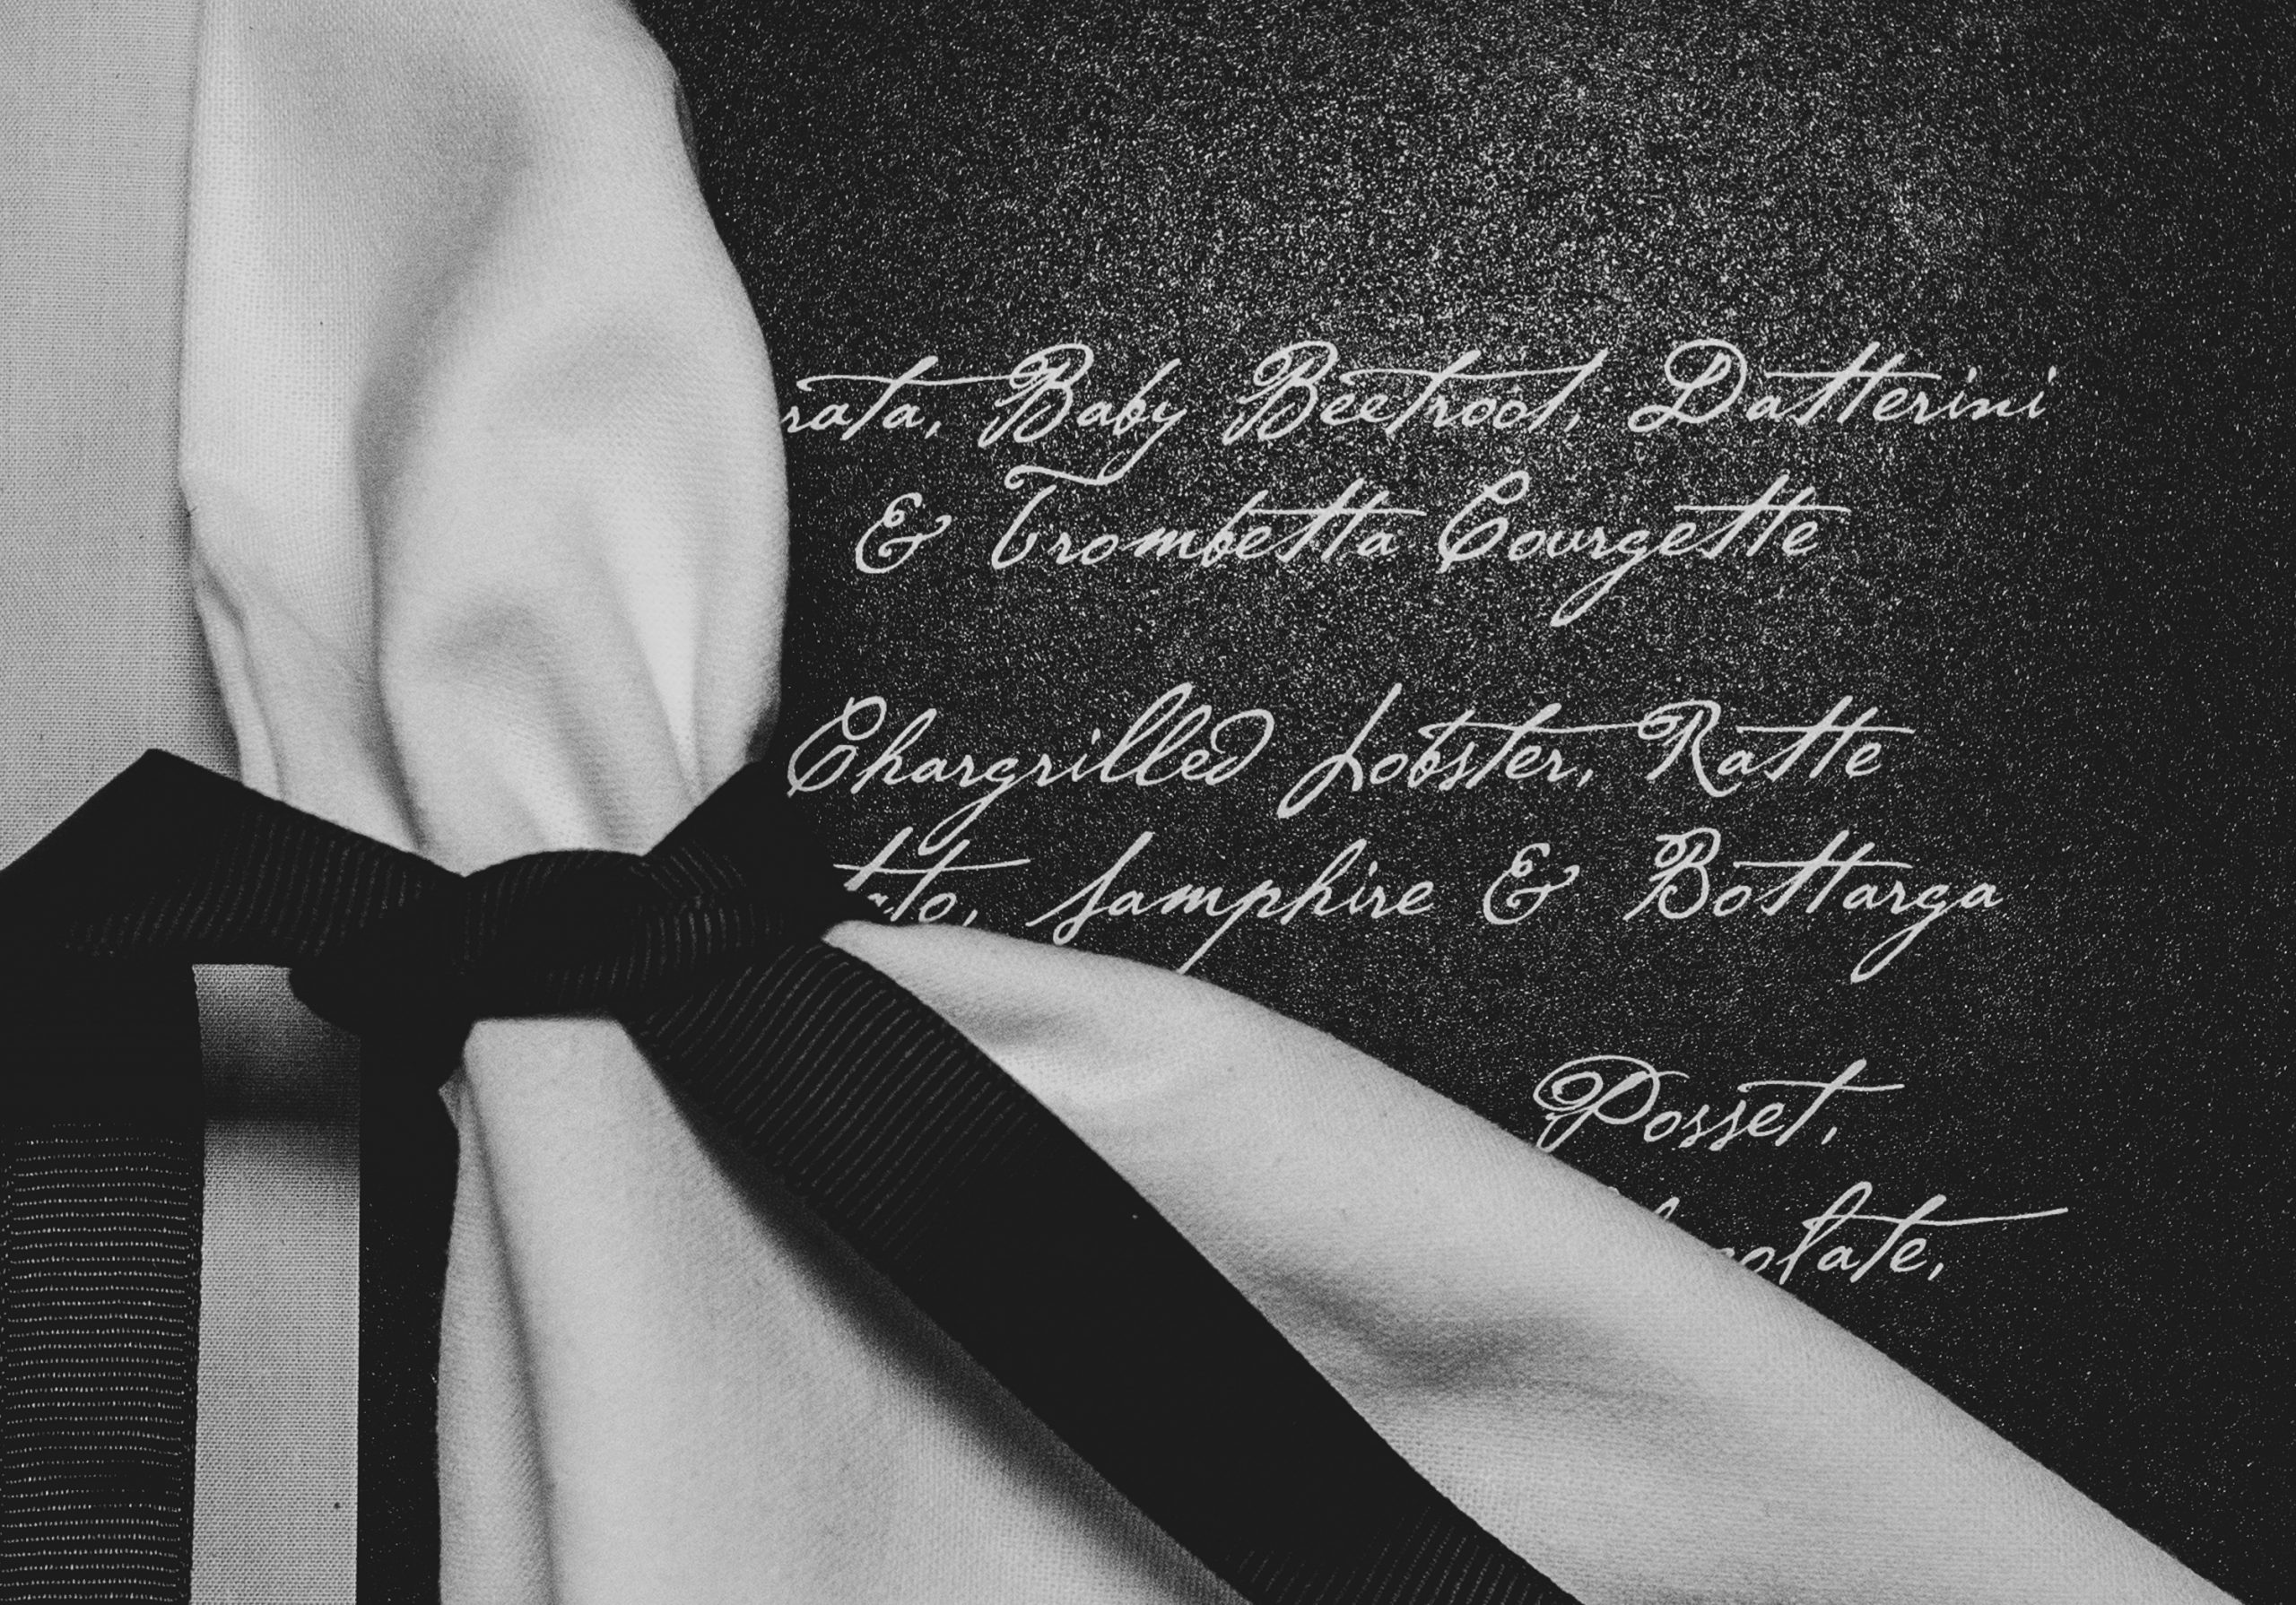 Baby Beetroot, Datterini
& Trombetta Courgette
Chargrilled Lobster, Ratte
Samphire & Bottarga
Posset,